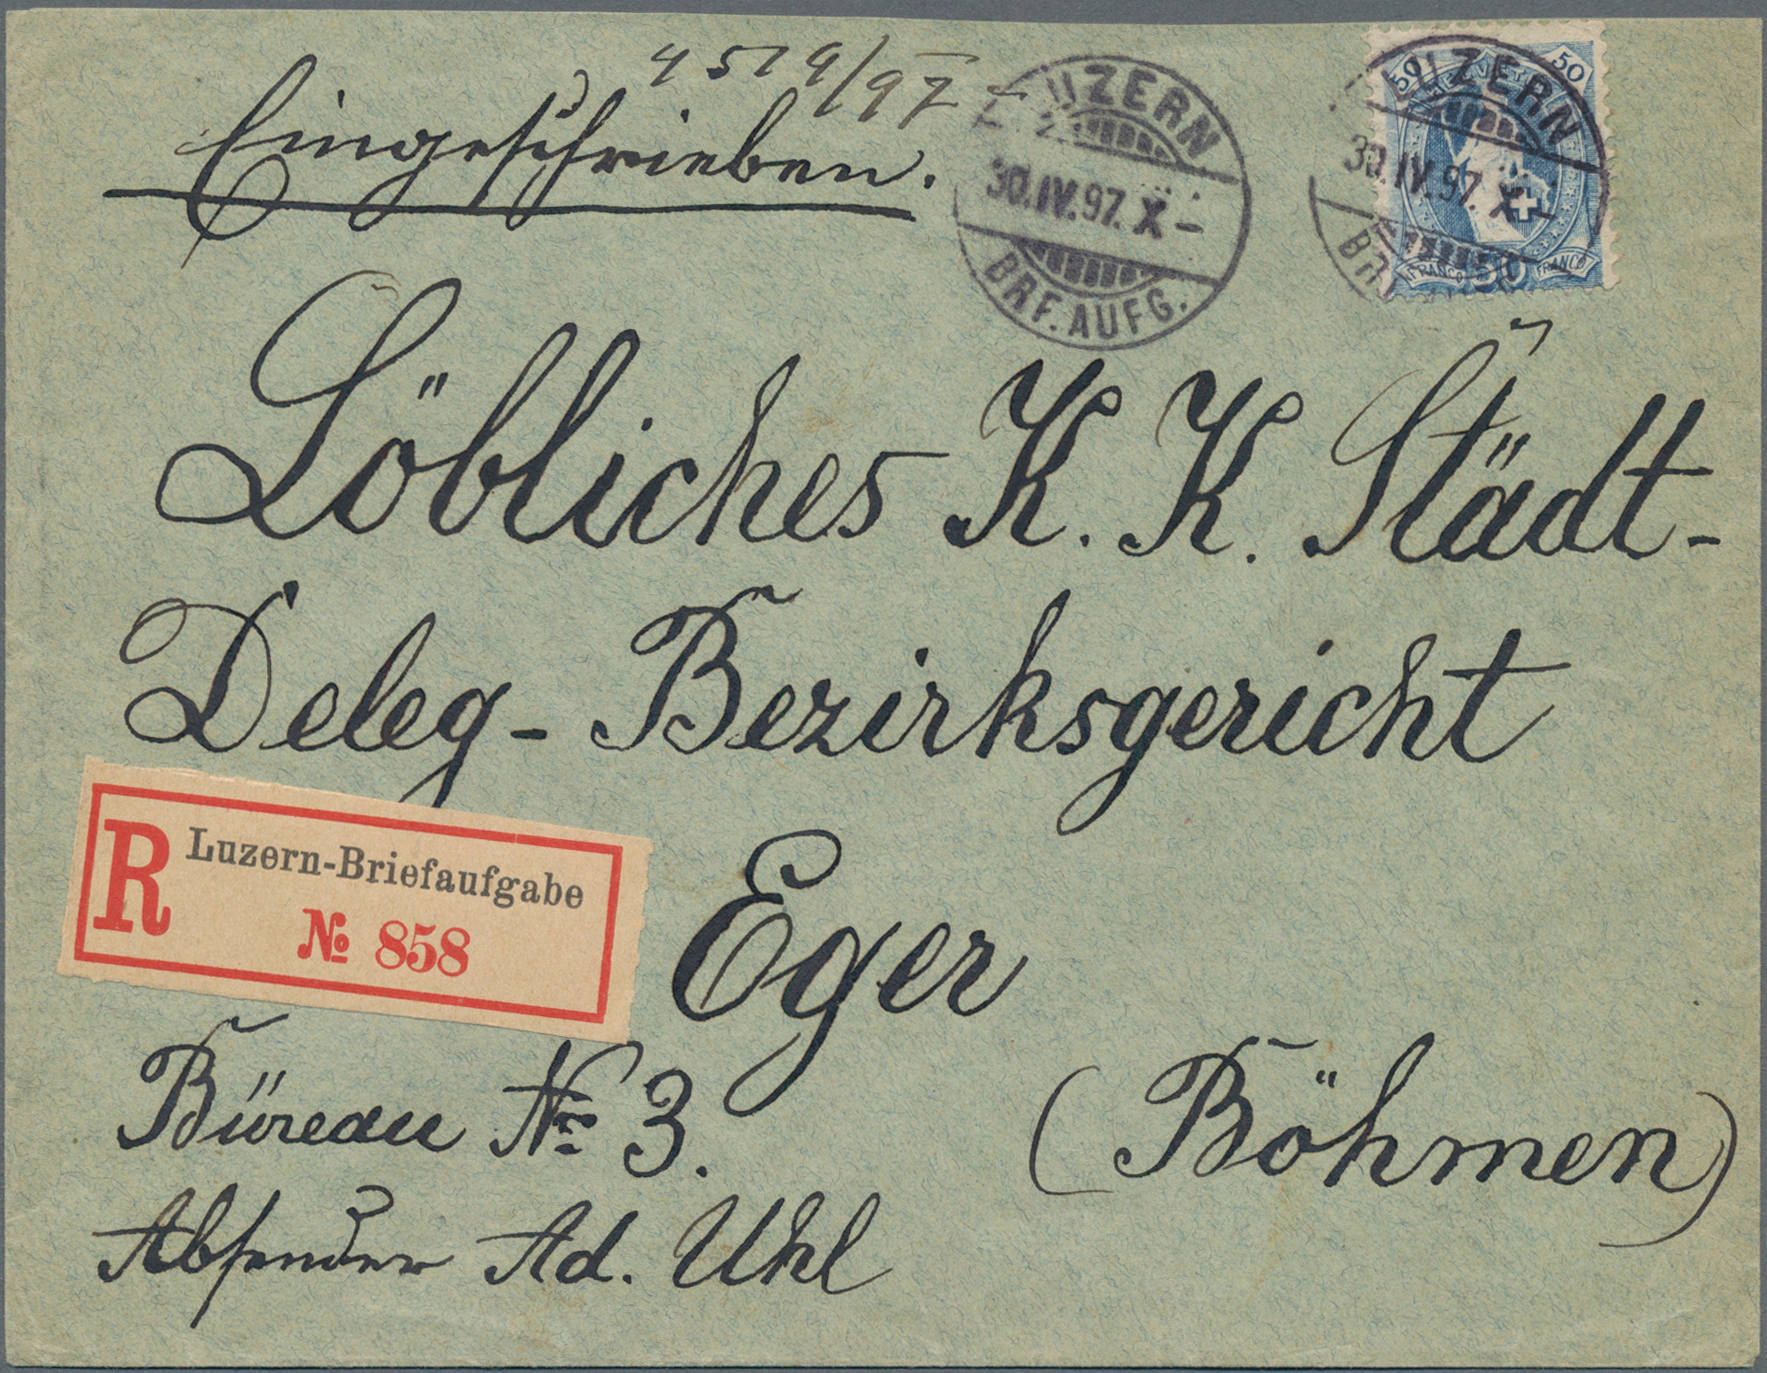 4519/97
Eingeschrieben.
LUZERN
30.IV.97.X-
BRF.AUFG.
50 HELVETIA 50
FRANCO 50 FRANCO
LUZERN
30.IV.97.X-
Löbliches K. K. Städt-
Deleg- Bezirksgericht
R Luzern-Briefaufgabe
№ 858
Eger
(Böhmen)
Büreau № 3.
Absender Ad. Uhl